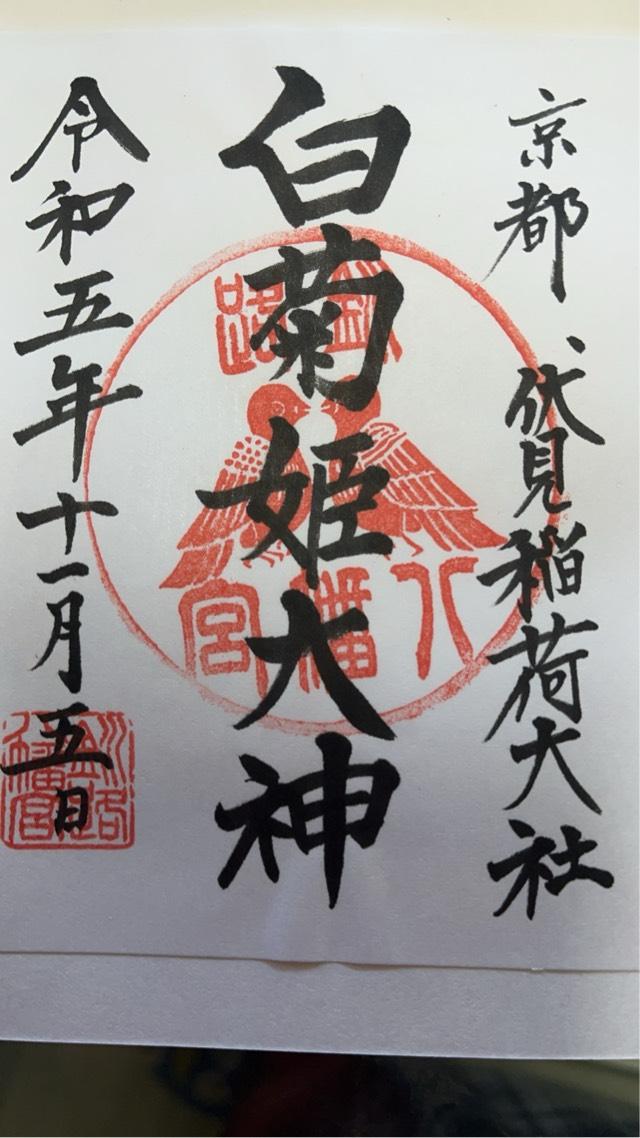 京都、伏見稲荷大社
白菊姫大神
釧路
八幡宮
令和五年十一月五日
釧路
八幡宮